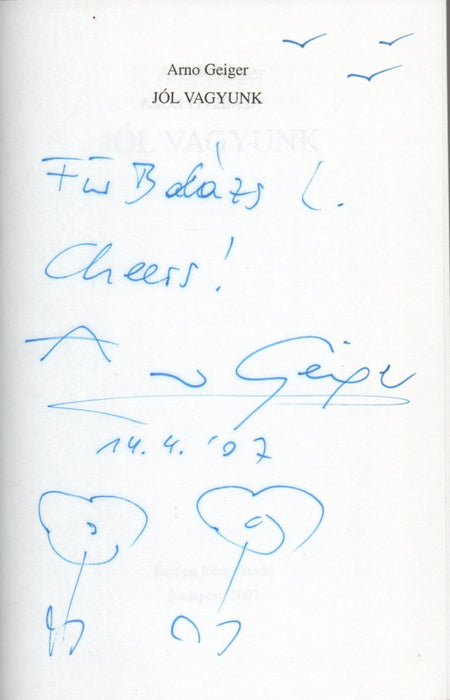 Arno Geiger
JÓL VAGYUNK
Für Balázs L.
Cheers!
Arno Geiger
14.4.'07
Európa Könyvkiadó
Budapest, 2007